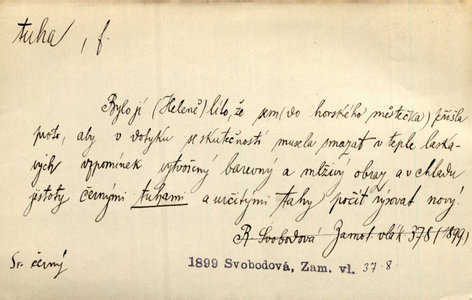 tuha, f.
Bylo jí (Heleně) líto, že sem (do horského městečka) přišla
proto, aby v dotyku se skutečností musela smazat v teple laska-
vých vzpomínek vytvořený barevný a mlživý obraz a v chladu
jistoty černými tuhami a určitými tahy počít rýsovat nový.
R. Svobodová Zamot. vlák. 378 (1899)
1899 Svobodová, Zam. vl. 37-8
Sr. černý